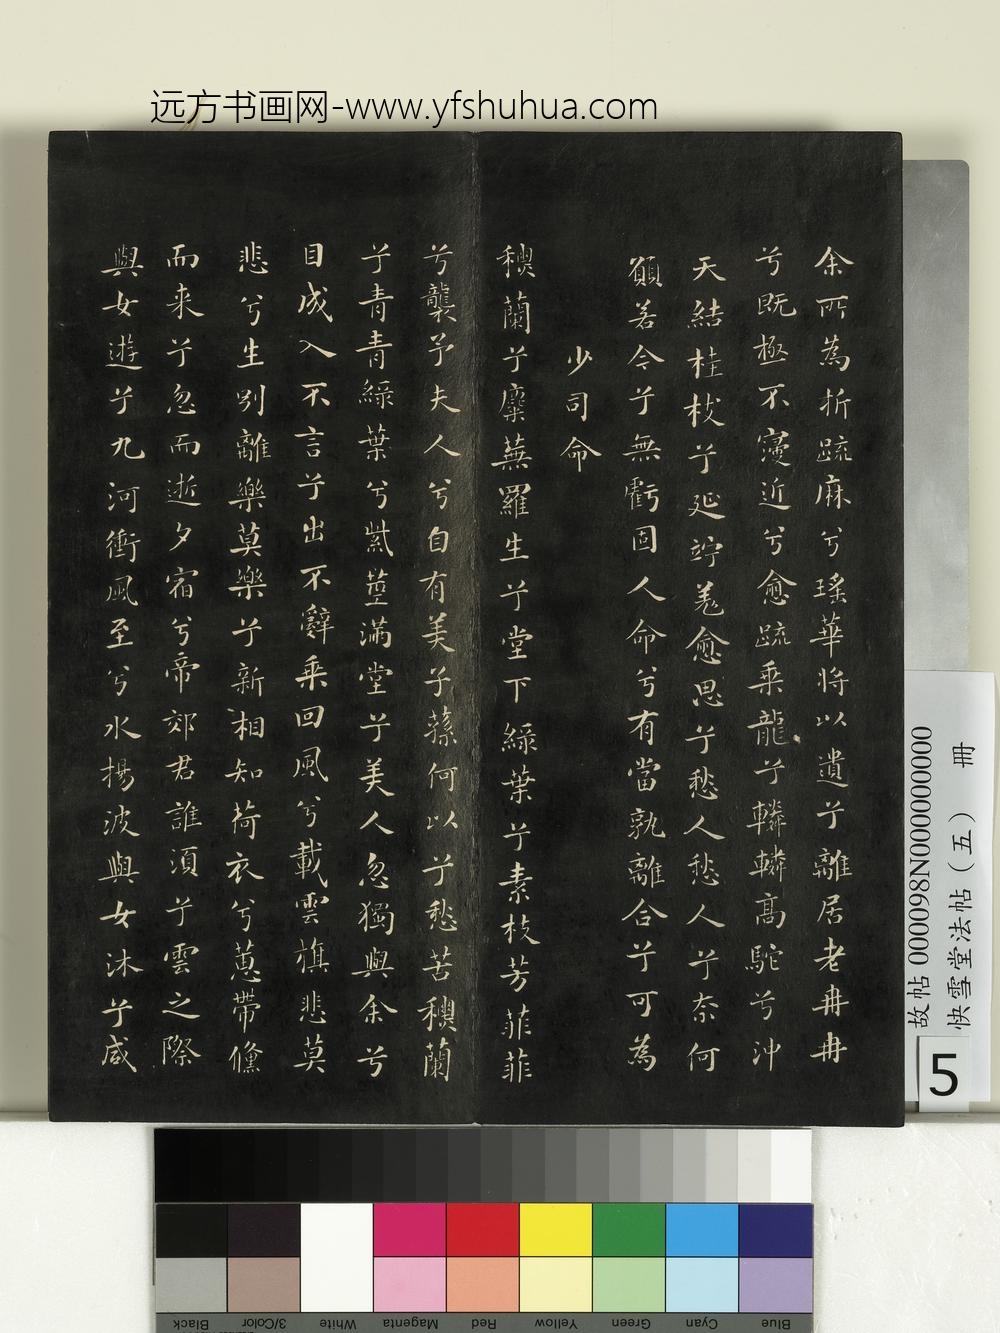 远方书画网-www.yfshuhua.com
余所為折疏麻兮瑤華将以遺兮離居老冉冉
兮既極不寖近兮愈疏乘龍兮轔轔高駝兮沖
天結桂枝兮延竚羌愈思兮愁人愁人兮奈何
願若今兮無虧固人命兮有當孰離合兮可為
少司命
穮蘭兮麋蕪羅生兮堂下綠葉兮素枝芳菲菲
兮襲予夫人兮自有美子蓀何以兮愁苦穮蘭
兮青青綠葉兮紫莖滿堂兮美人忽獨與余兮
目成入不言兮出不辭乘回風兮載雲旗悲莫
悲兮生别離樂莫樂兮新相知荷衣兮蕙帶儵
而来兮忽而逝夕宿兮帝郊君誰須兮雲之際
與女遊兮九河衝風至兮水揚波與女沐兮咸
故帖 000098N000000000
快雪堂法帖（五） 冊
5
Black
3/Color
White
Magenta
Red
Yellow
Green
Cyan
Blue